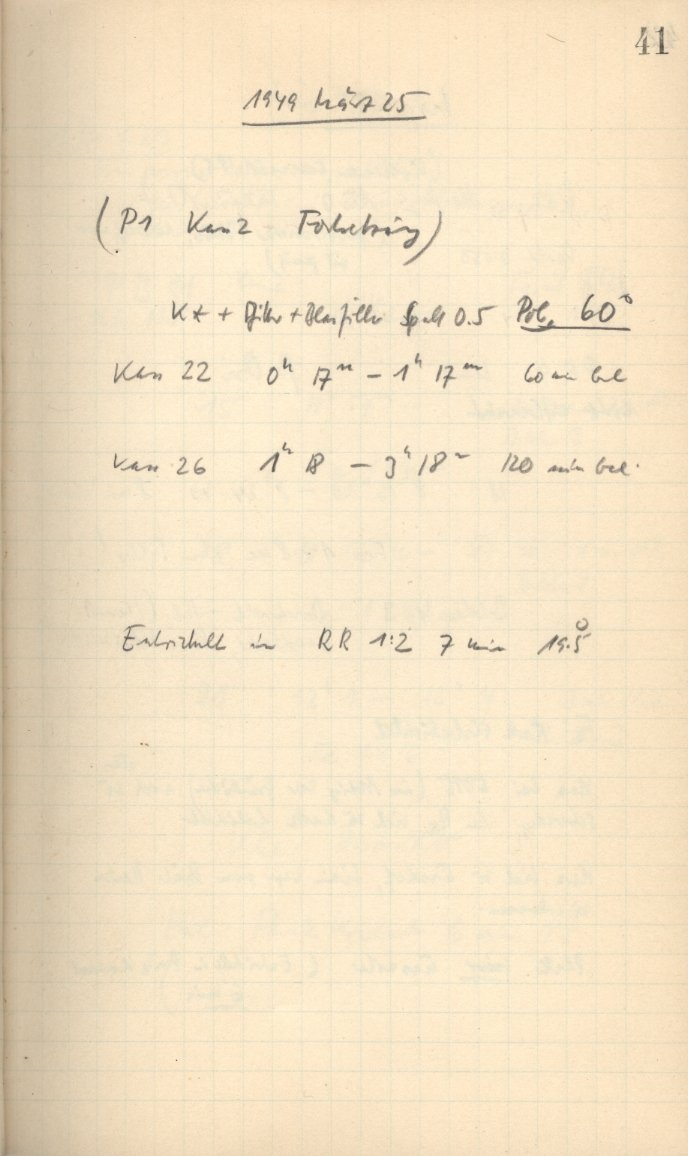 41
1949 März 25
(P1 Kass 2 Fortsetzung)
K* + + Blaufilter Spalt 0.5 Pol. 60°
Kass 22 0h 17m – 1h 17m 60 min bel
Kass 26 1h 18 – 3h 18m 120 min bel.
Entwickelt in RR 1:2 7 min 19.5°